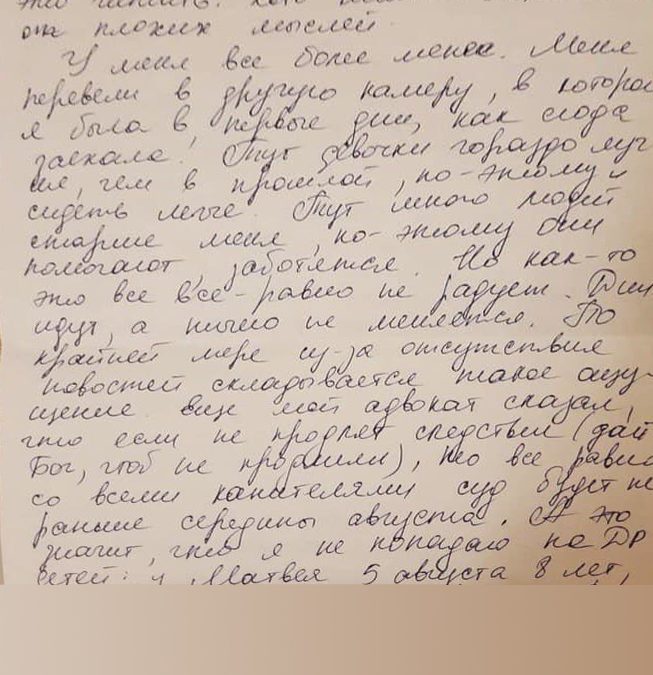 она плохих мыслей.
У меня все более менее. Меня
перевели в другую камеру, в которой
я была в первые дни, как сюда
заехала. Тут девочки гораздо луч-
ше, чем в прошлой, по-этому и
сидеть легче. Тут много людей
старше меня, по-этому они
помогают, заботятся. Но как-то
это все все-равно не радует. Дни
идут, а ничего не меняется. По
крайней мере из-за отсутствия
новостей складывается такое ощу-
щение. Еще мой адвокат сказал,
что если не продлят следствия (дай
Бог, чтоб не продлили), то все равно
со всеми канителями суд будет не
раньше середины августа. А это
значит, что я не попадаю на ДР
детей: у Матвея 5 августа 8 лет,